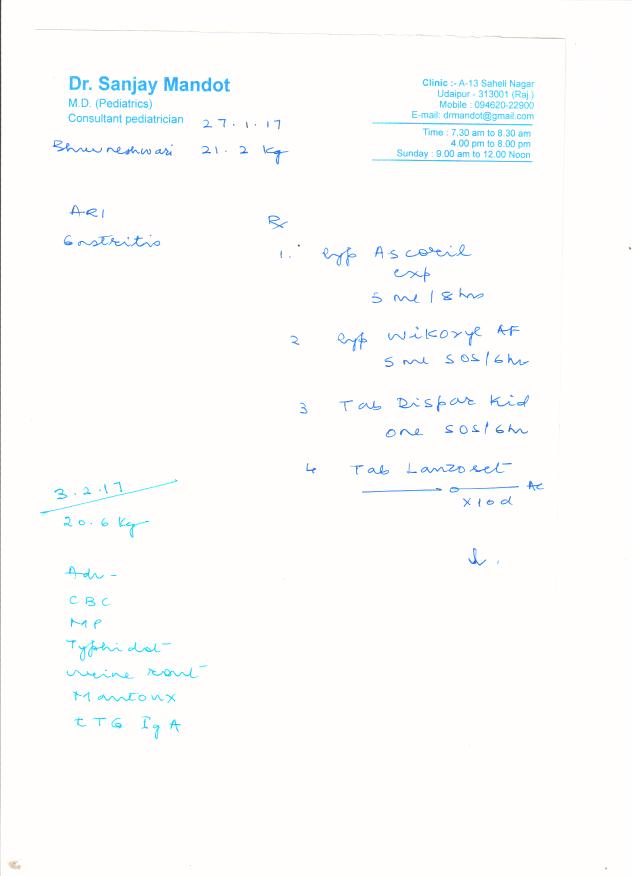 Dr. Sanjay Mandot
M.D. (Pediatrics)
Consultant pediatrician
Clinic :- A-13 Saheli Nagar
Udaipur - 313001 (Raj.)
Mobile : 094620-22900
E-mail: drmandot@gmail.com
Time : 7.30 am to 8.30 am
4.00 pm to 8.00 pm
Sunday : 9.00 am to 12.00 Noon
27.1.17
Bhuvneshwari 21.2 Kg
ARI
Gastritis
Rx
1. Syp Ascoril
exp
5 ml / 8 hrs
2 Syp Wikoryl AF
5 ml SOS/6hr
3 Tab Dispar Kid
one SOS/6hr
4 Tab Lanzoset
AC
x 10 d
3.2.17
20.6 Kg
Adv -
CBC
MP
Typhidot
urine rout
Mantoux
tTG IgA